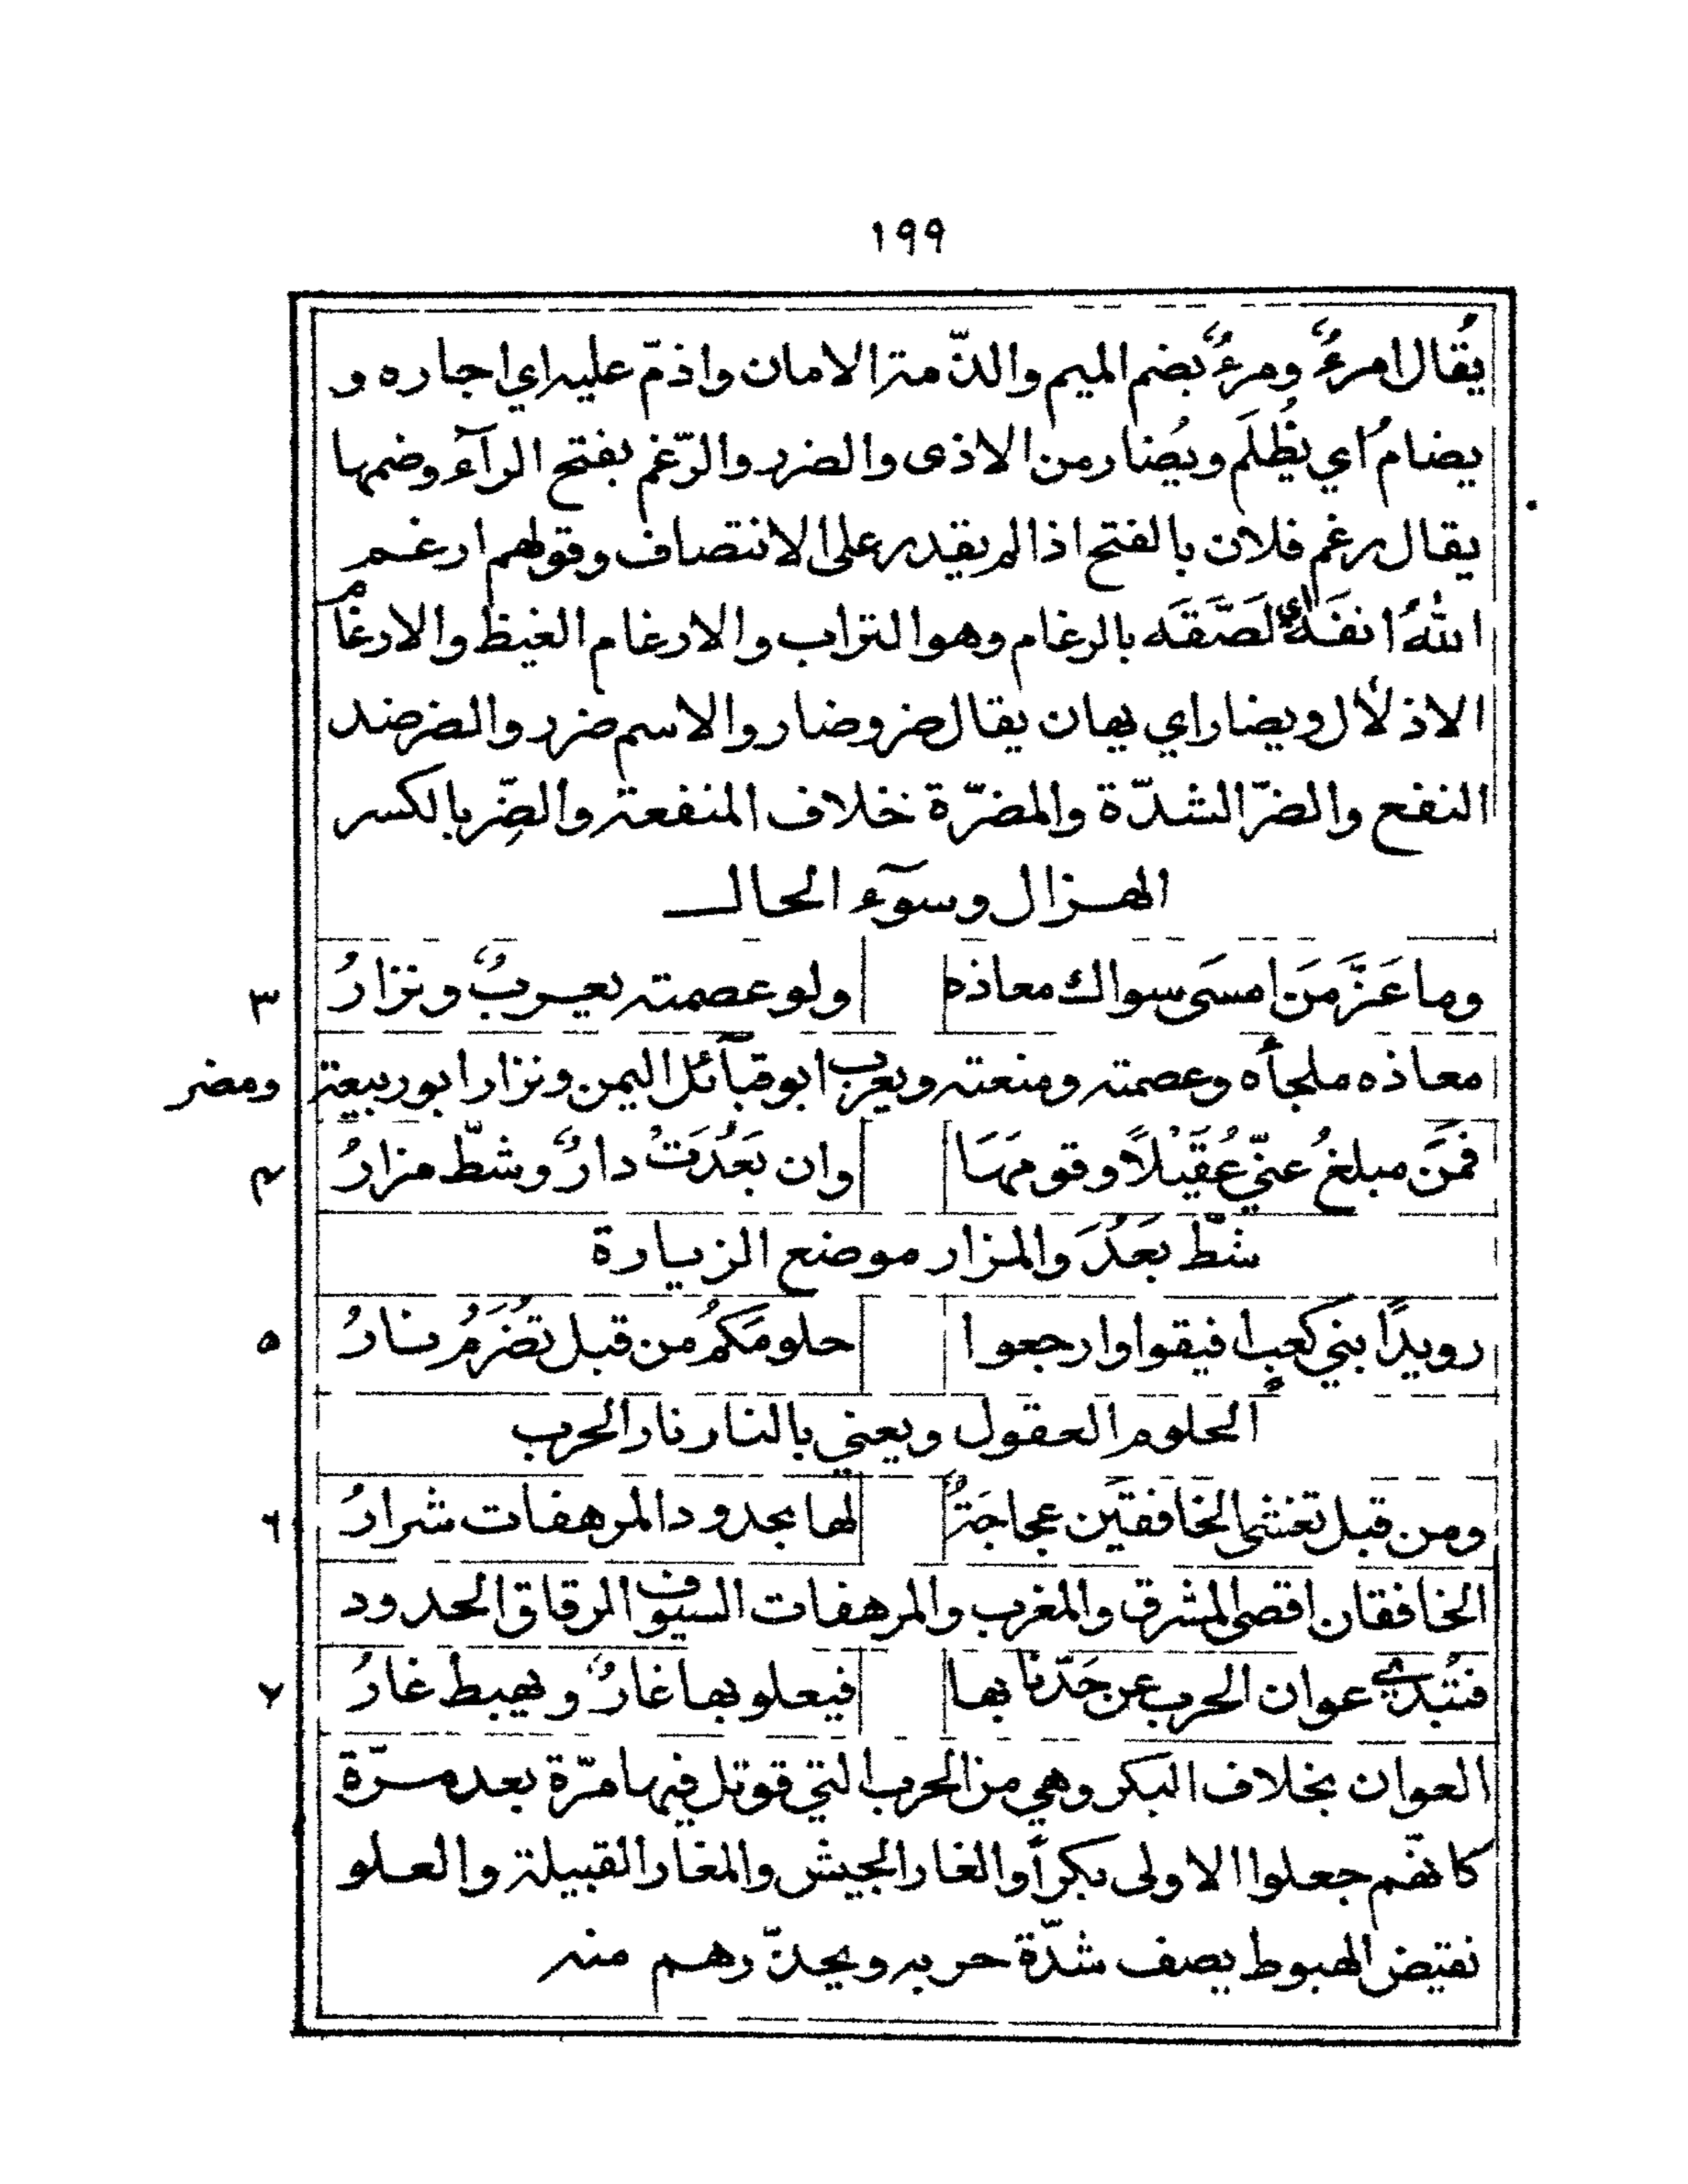 ١٩٩
يُقال امرءٌ ومرءٌ بضم الميم والذّمة الامان واذمّ عليه اي اجاره و
يضام اي يُظْلَم ويُضار من الاذى والضرر والرّغم بفتح الرآء وضمها
يقال رغم فلان بالفتح اذا لم يقدر على الانتصاف وقولهم ارغم
اللهُ انفَهُ اي لَصَّقَه بالرغام وهو التراب والارغام الغيظ والارغام
الاذلال ويضار اي يهان يقال ضر وضار والاسم ضرر والضر ضد
النفع والضرّ الشدّة والمضرّة خلاف المنفعة والضِّر بالكسر
الهزال وسوٓء الحال
وما عَزَّ مَن امسَى سواك معاذه ولو عصمته يعربٌ ونزارُ ٣
معاذه ملجأه وعصمته ومنعته ويعرب ابو قبآئل اليمن ونزار ابو ربيعة ومضر
فمَن مبلغُ عنّي عُقَيْلاً وقومَهَا وان بَعُدَتْ دارٌ وشطّ مزارُ ٤
شطّ بَعُدَ والمزار موضع الزيارة
رويدًا بني كعبٍ افيقوا وارجعوا حلومَكمُ من قبل تُضرَمُ نارُ ٥
الحلوم العقول ويعني بالنار نار الحرب
ومن قبل تغشى الخافقَين عجاجَةٌ لها بحدود المرهفات شرارُ ٦
الخافقان اقصى المشرق والمغرب والمرهفات السيوف الرقاق الحدود
فتُبْدي عوان الحرب عن حَدّنا بها فيعلو بها غارٌ ويهبط غارُ ٧
العوان بخلاف البكر وهي من الحرب التي قوتل فيها مرّة بعد مرّة
كانهم جعلوا الاولى بكرًا والغار الجيش والمغار القبيلة والعلو
نقيض الهبوط يصف شدّة حربه ويحذّرهم منه